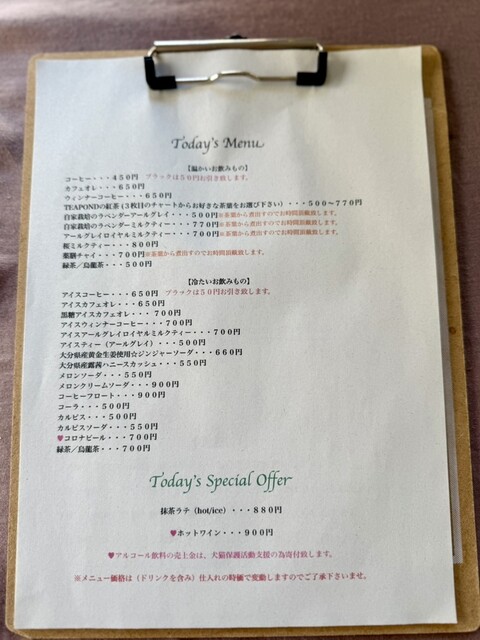 Today's Menu
【温かいお飲みもの】
コーヒー・・・４５０円　ブラックは５０円お引き致します。
カフェオレ・・・６５０円
ウィンナーコーヒー・・・６５０円
TEAPONDの紅茶 (３枚目のチャートからお好きな茶葉をお選び下さい) ・・・５００～７７０円
自家栽培のラベンダーアールグレイ・・・５００円※茶葉から煮出すのでお時間頂戴致します。
自家栽培のラベンダーミルクティー・・・７７０円※茶葉から煮出すのでお時間頂戴致します。
アールグレイロイヤルミルクティー・・・７００円※茶葉から煮出すのでお時間頂戴致します。
桜ミルクティー・・・８００円
薬膳チャイ・・・７００円※茶葉から煮出すのでお時間頂戴致します。
緑茶／烏龍茶・・・５００円
【冷たいお飲みもの】
アイスコーヒー・・・６５０円　ブラックは５０円お引き致します。
アイスカフェオレ・・・６５０円
黒糖アイスカフェオレ・・・７００円
アイスウィンナーコーヒー・・・７００円
アイスアールグレイロイヤルミルクティー・・・７００円
アイスティー（アールグレイ）・・・５００円
大分県産黄金生姜使用☆ジンジャーソーダ・・・６６０円
大分県産露茜ハニースカッシュ・・・５５０円
メロンソーダ・・・５５０円
メロンクリームソーダ・・・９００円
コーヒーフロート・・・９００円
コーラ・・・５００円
カルピス・・・５００円
カルピスソーダ・・・５５０円
♥コロナビール・・・７００円
緑茶／烏龍茶・・・７００円
Today's Special Offer
抹茶ラテ（hot/ice）・・・８８０円
♥ホットワイン・・・９００円
♥アルコール飲料の売上金は、犬猫保護活動支援の為寄付致します。
※メニュー価格は（ドリンクを含み）仕入れの時価で変動しますのでご了承下さいませ。